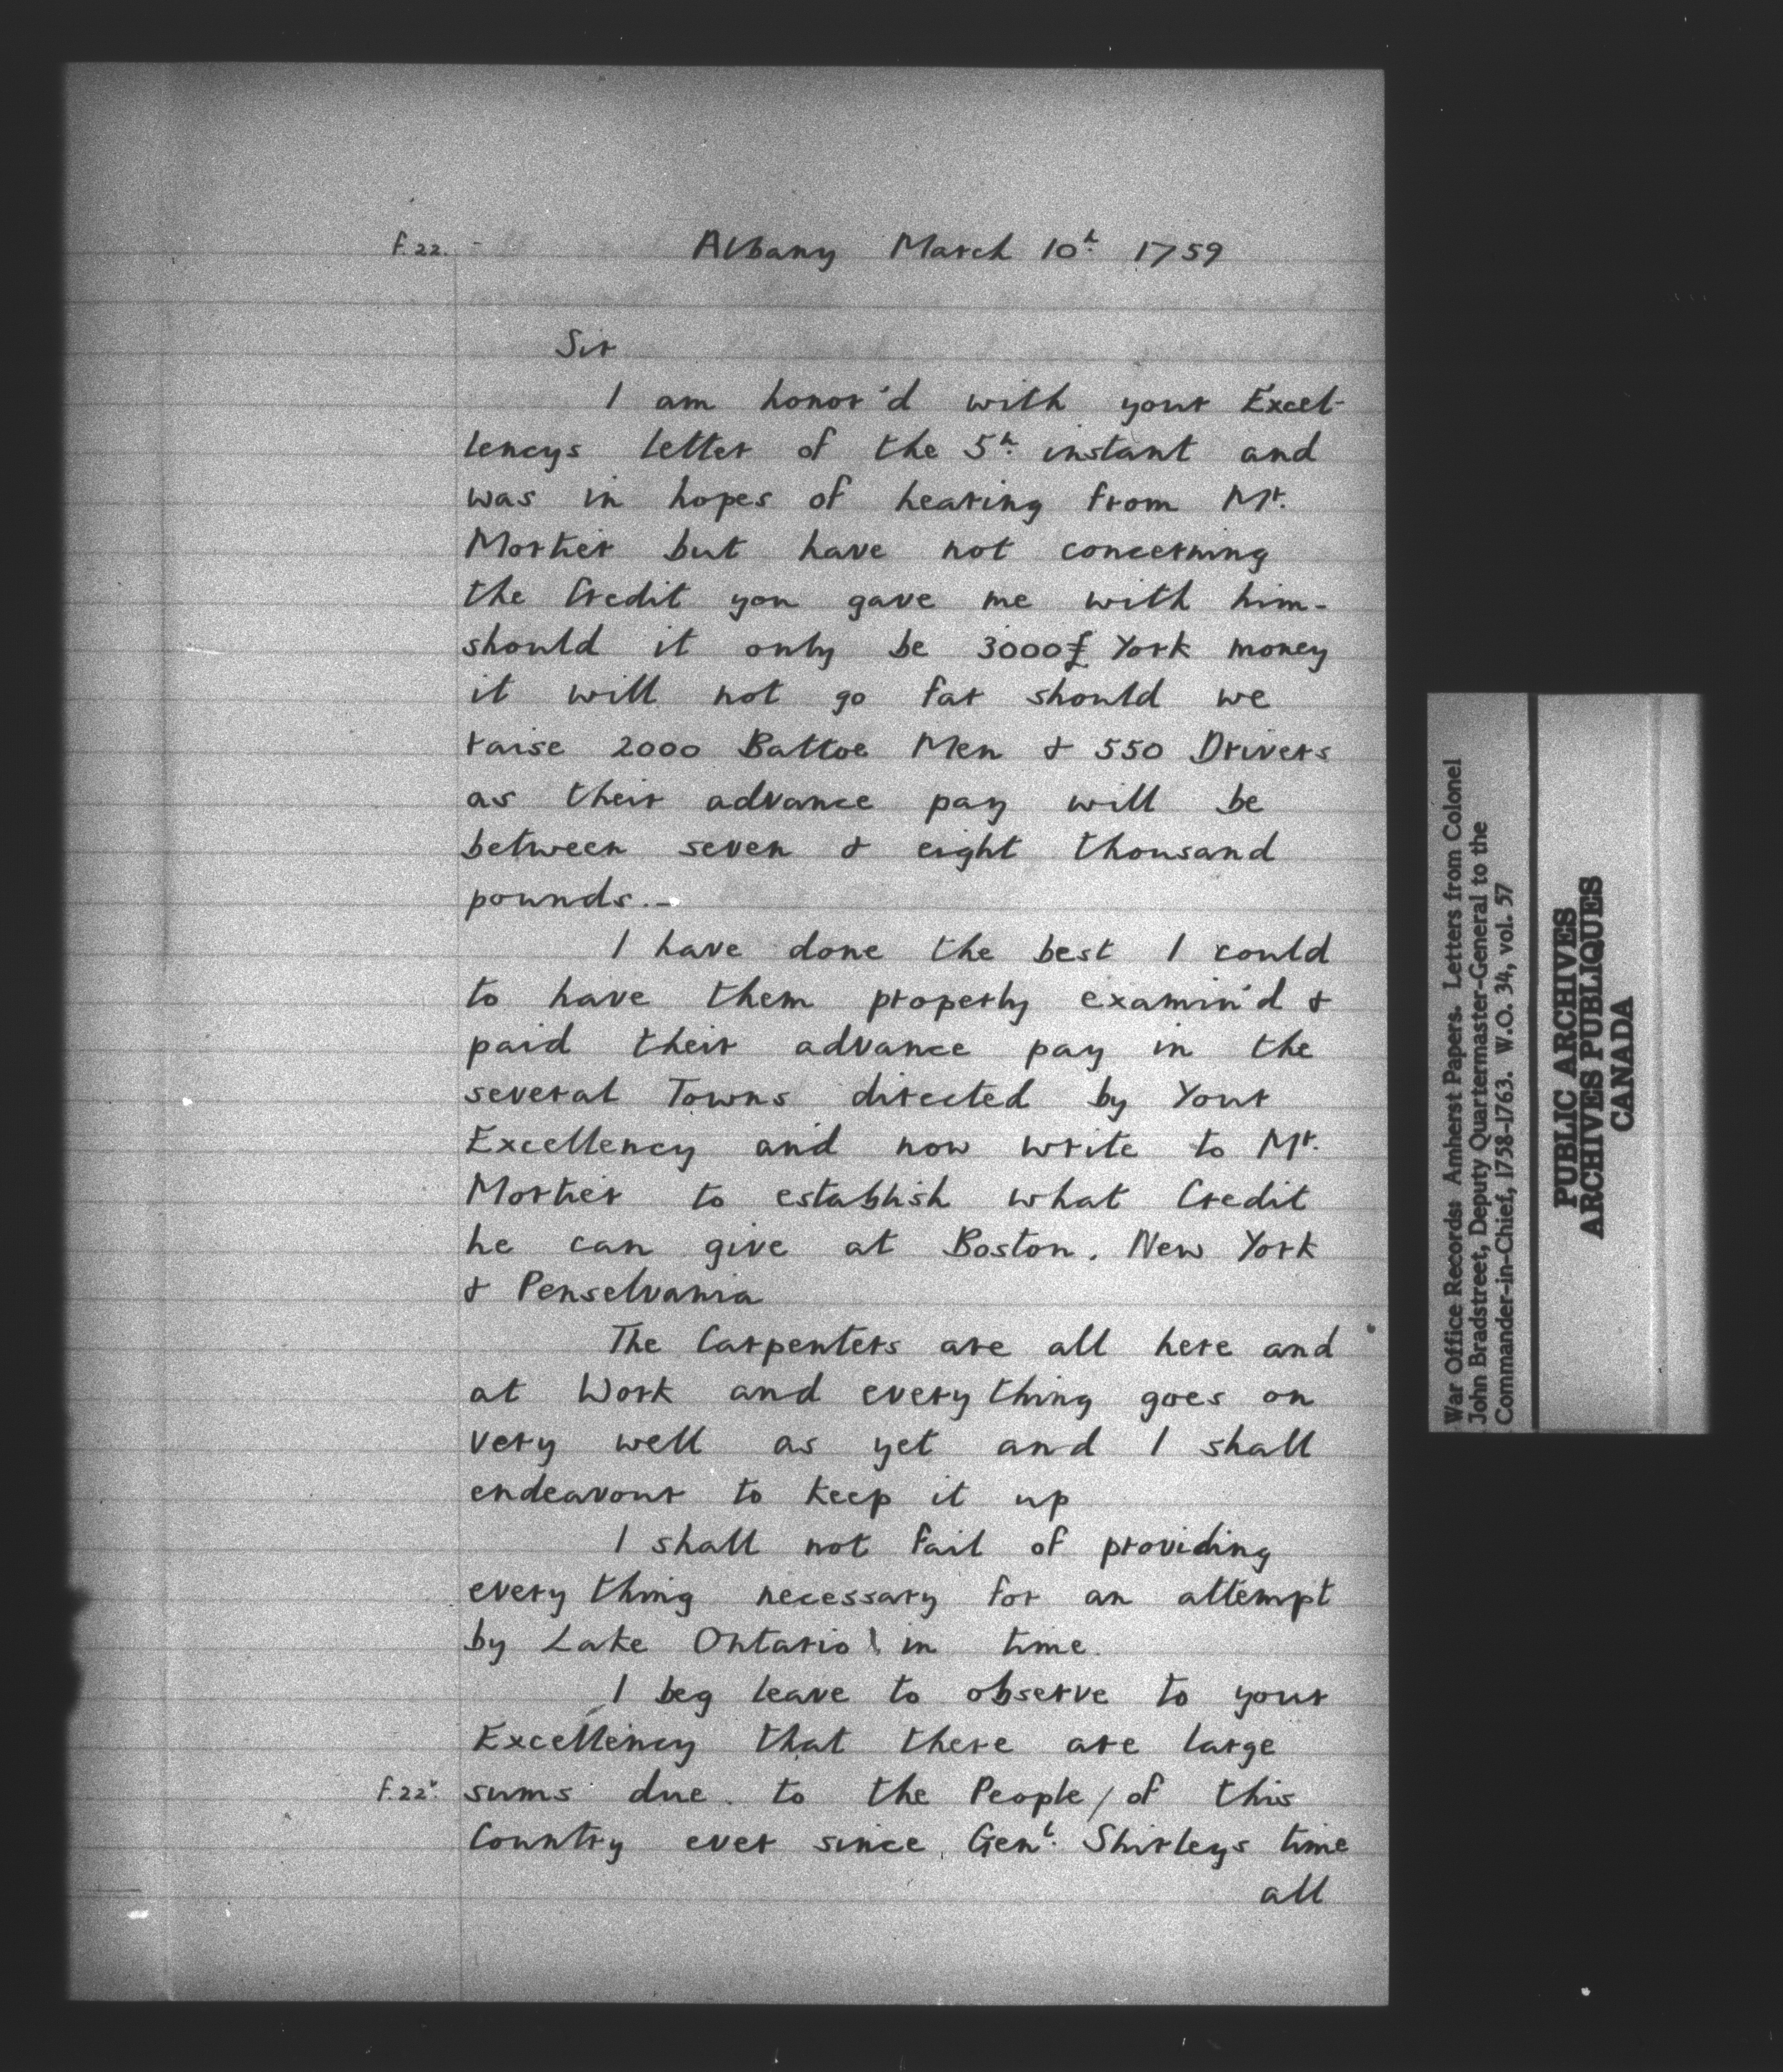 f.22. Albany March 10ʰ. 1759
Sir
I am honor'd with your Excel-
lencys letter of the 5ʰ. instant and
was in hopes of hearing from Mʳ.
Mortier but have not concerning
the Credit you gave me with him-
should it only be 3000£ York money
it will not go far should we
raise 2000 Battoe Men & 550 Drivers
as their advance pay will be
between seven & eight thousand
pounds.-
I have done the best I could
to have them properly examin'd &
paid their advance pay in the
several Towns directed by Your
Excellency and now write to Mʳ.
Mortier to establish what Credit
he can give at Boston. New York
& Penselvania
The Carpenters are all here and
at Work and every thing goes on
very well as yet and I shall
endeavour to keep it up
I shall not fail of providing
every thing necessary for an attempt
by Lake Ontario in time.
I beg leave to observe to your
Excellency that there are large
f.22ᵛ. sums due to the People / of this
Country ever since Genˡ. Shirleys time
all
War Office Records: Amherst Papers. Letters from Colonel
John Bradstreet, Deputy Quartermaster-General to the
Commander-in-Chief, 1758-1763. W.O. 34, vol. 57
PUBLIC ARCHIVES
ARCHIVES PUBLIQUES
CANADA